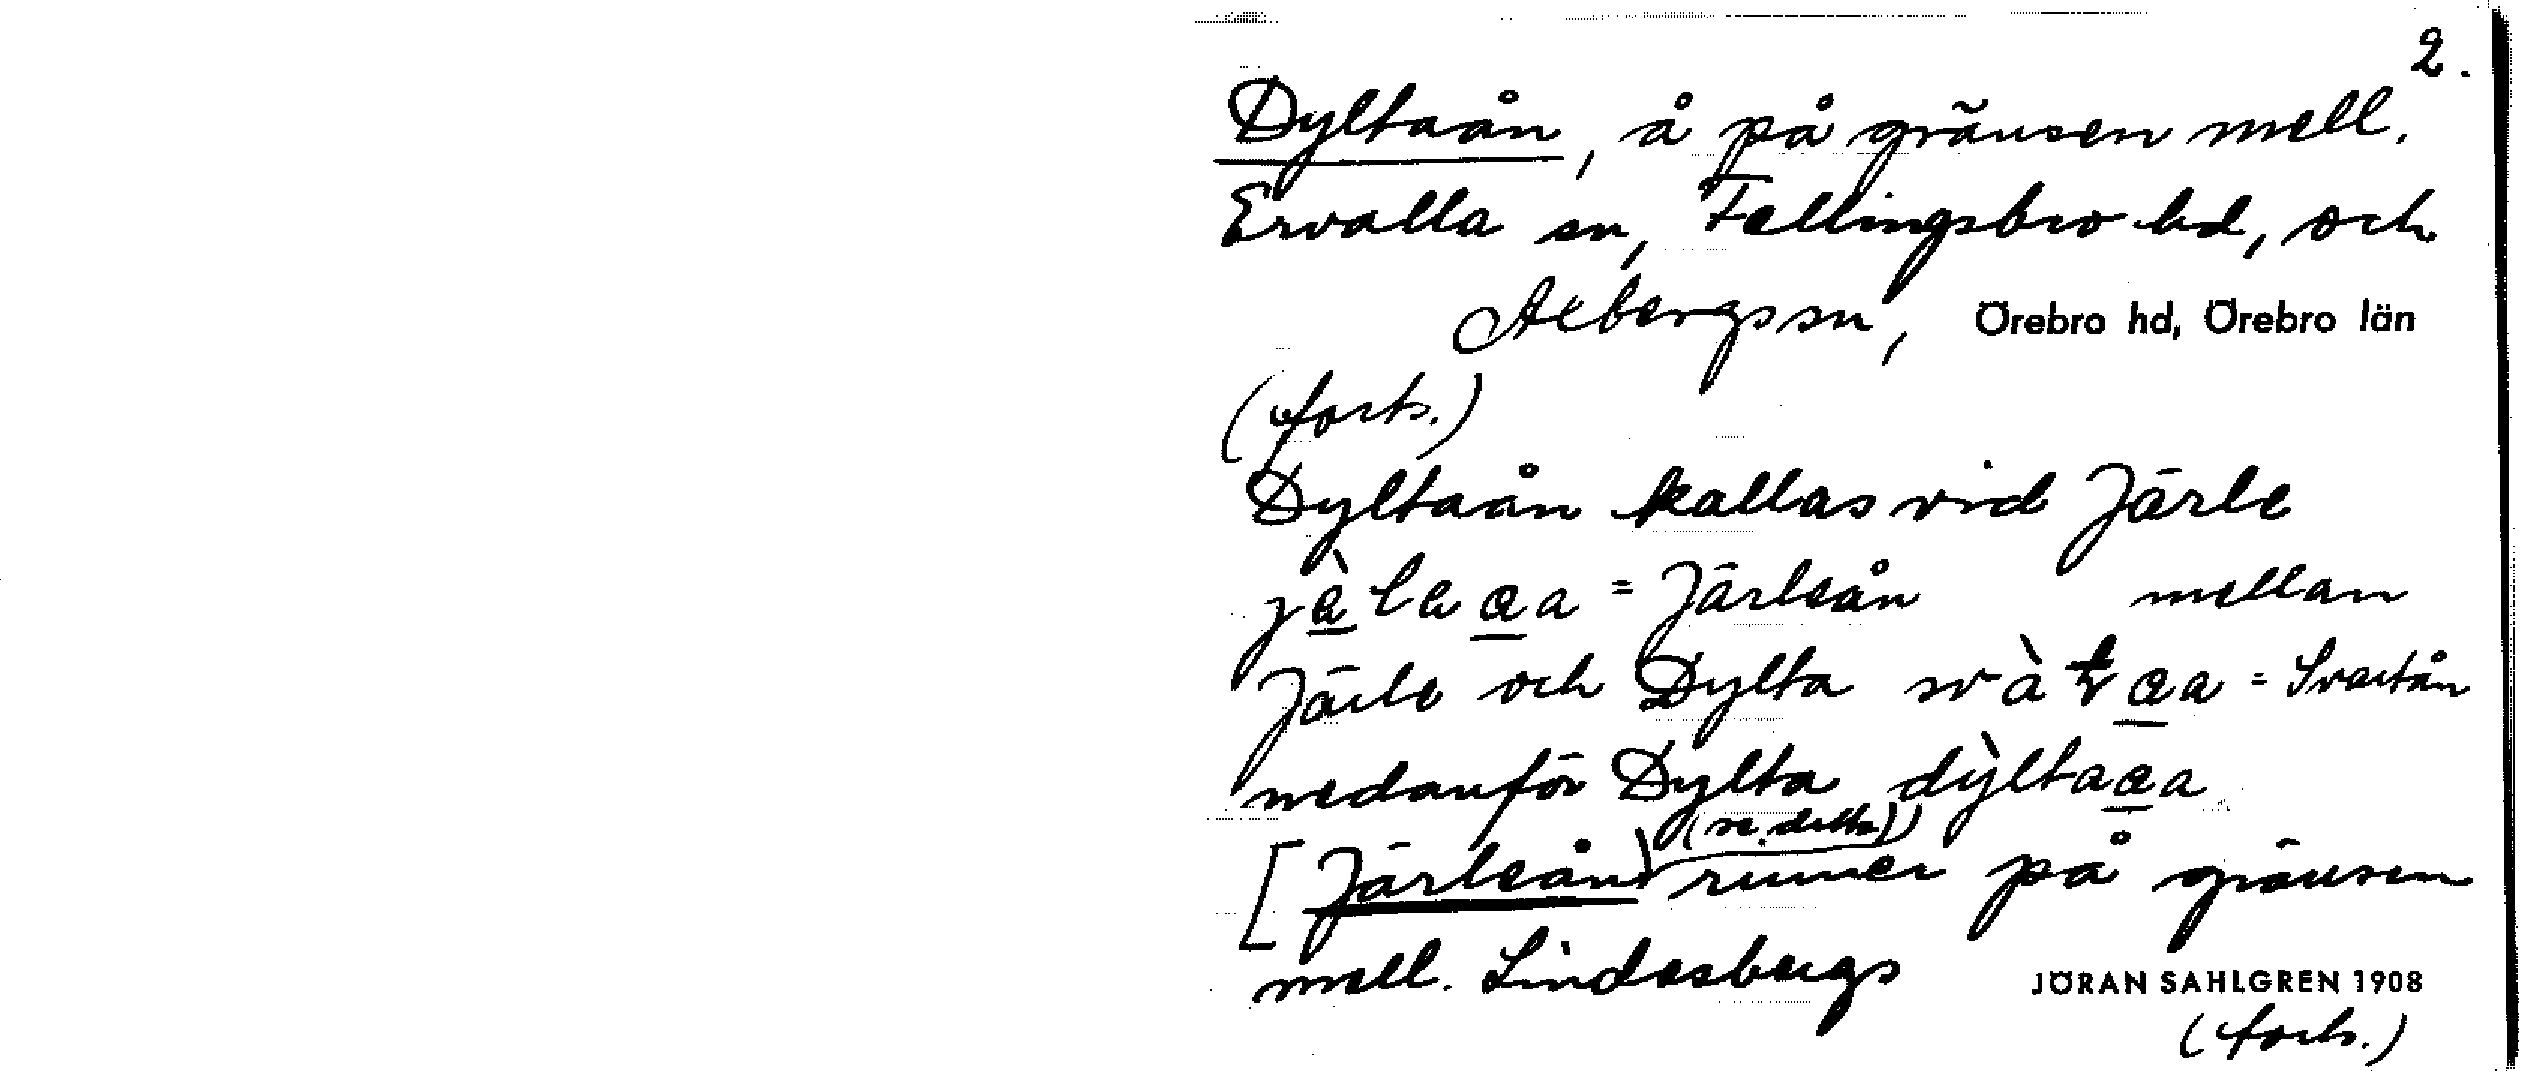 2.
Dyltaån, å på gränsen mell.
Ervalla sn, Fellingsbro hd, och
Axbergs sn, Örebro hd, Örebro län
(forts.)
Dyltaån kallas vid Järle
= Järleån mellan
Järle och Dylta = Svartån
nedanför Dylta dỳltaa̲a
(se detta)
[Järleån rinner på gränsen
mell. Lindesbergs
JÖRAN SAHLGREN 1908
(forts.)